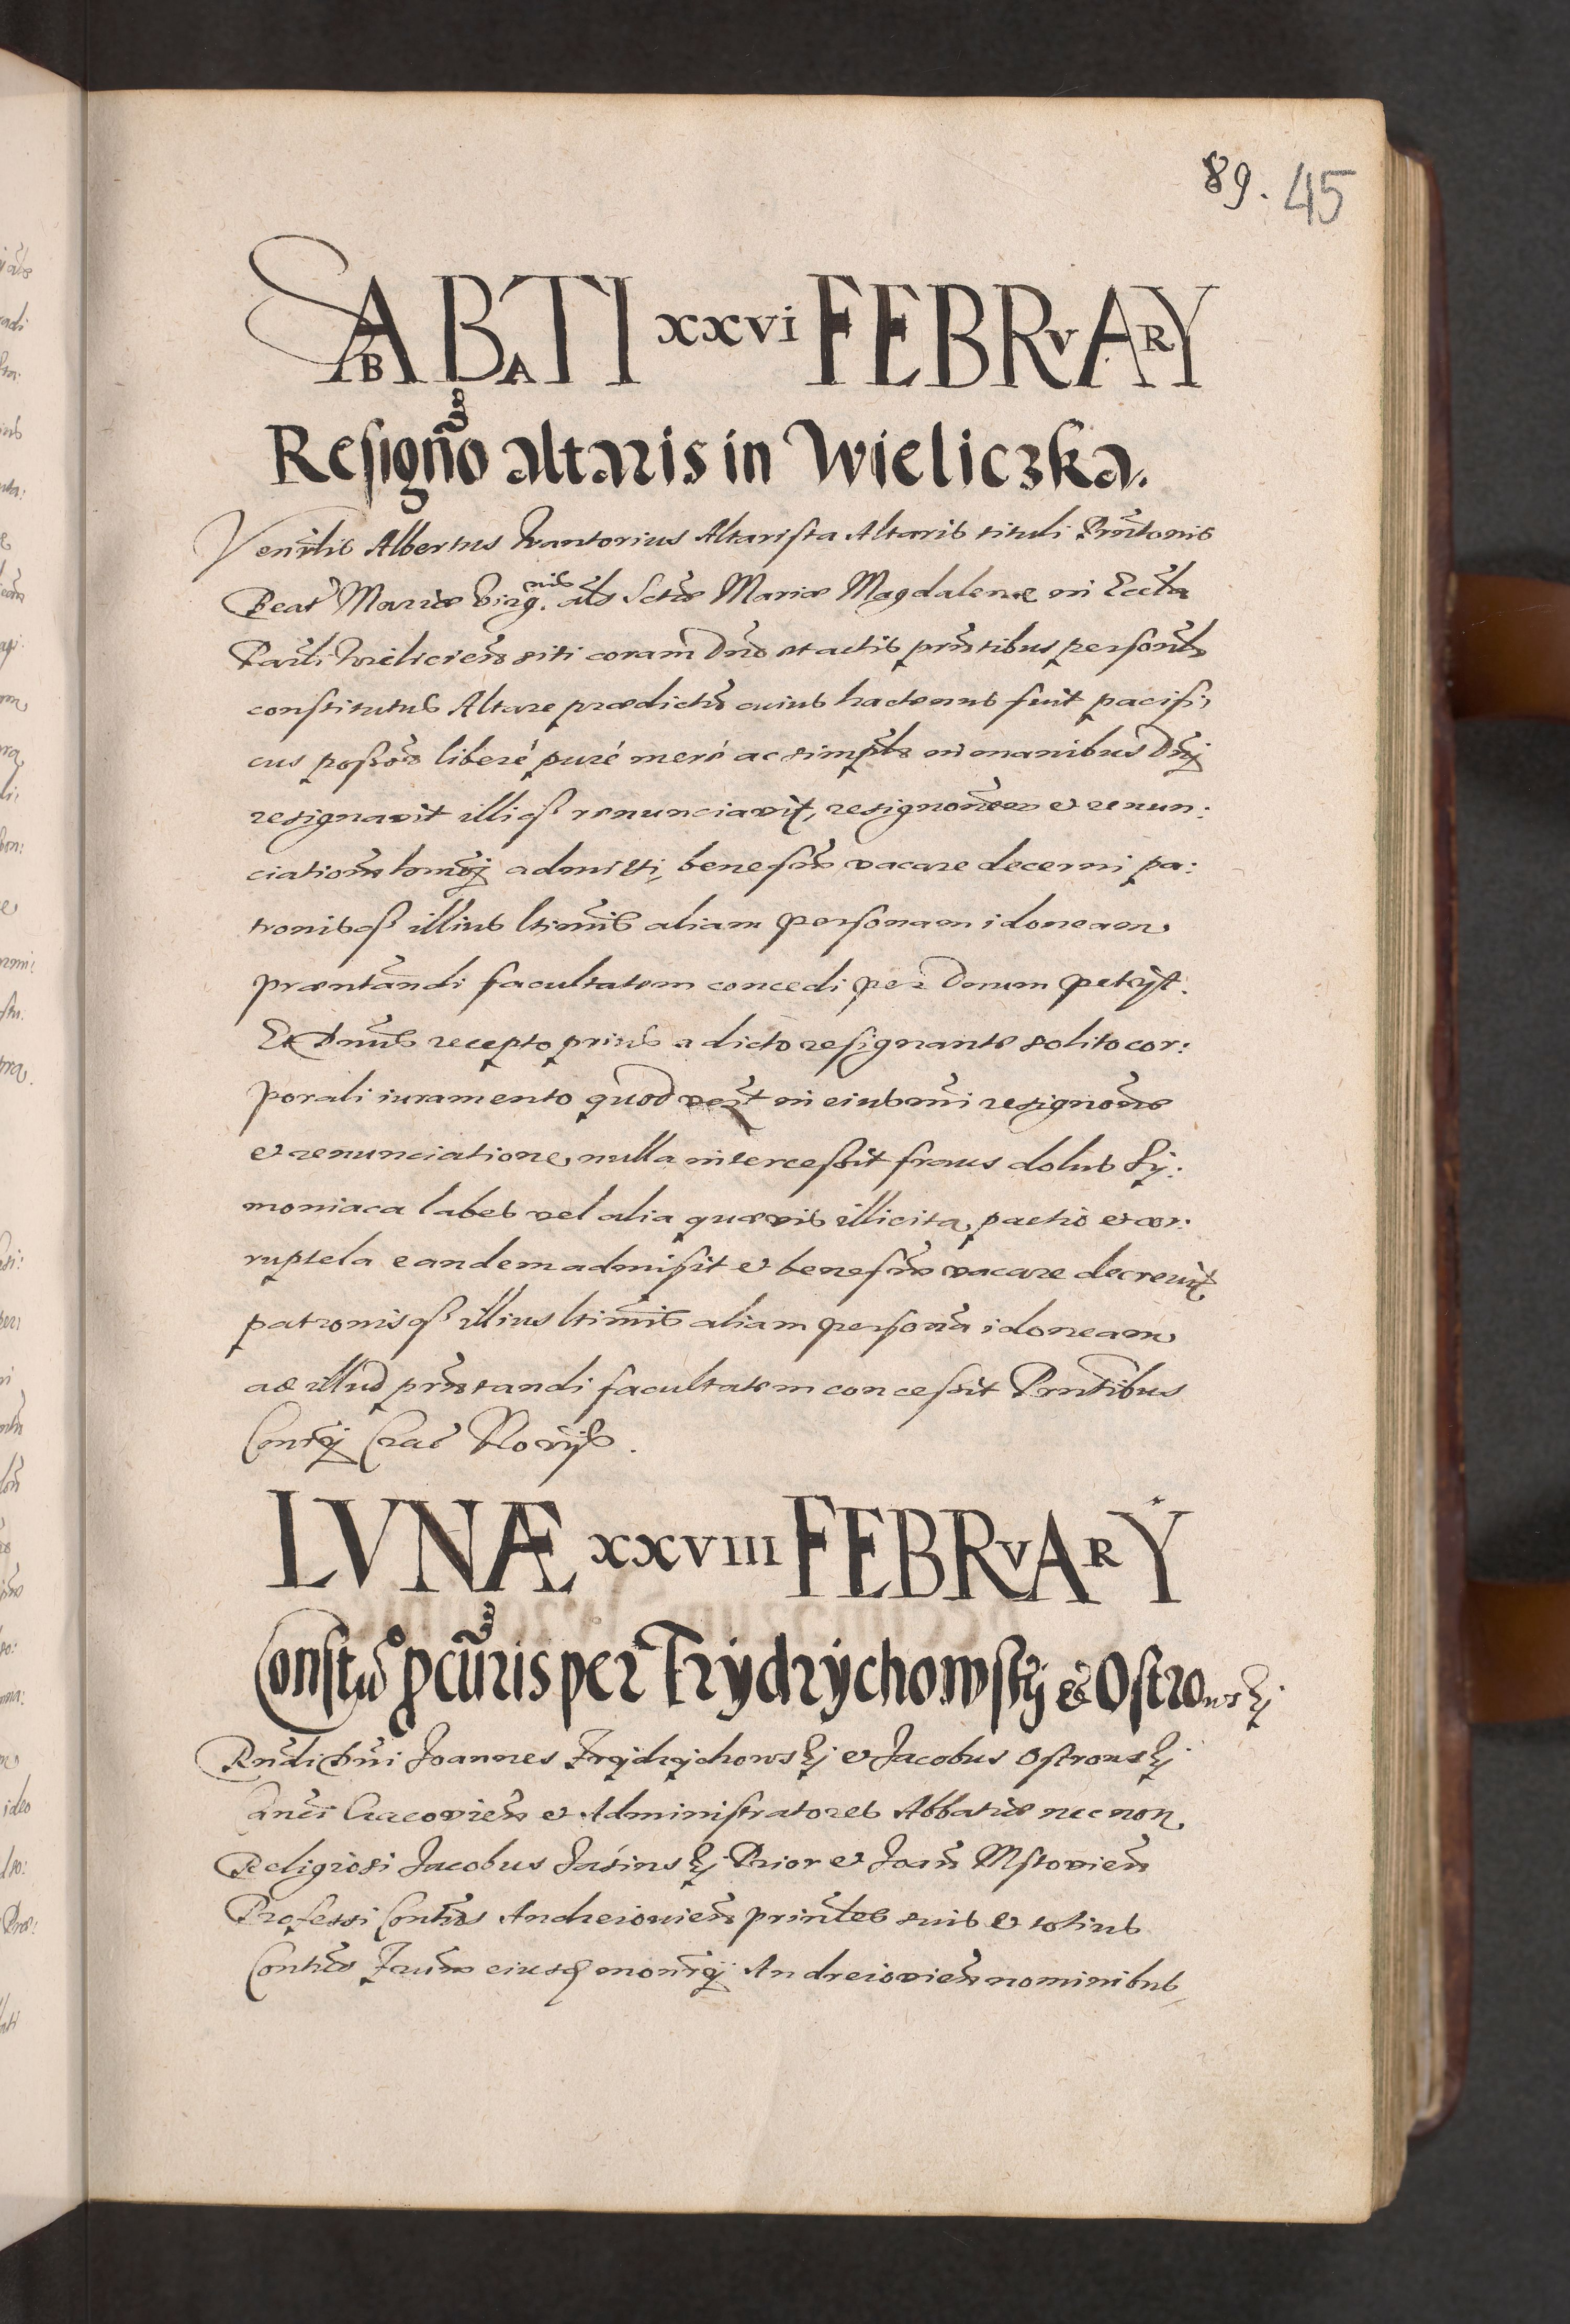 89. 45
SABBATI xxvi FEBRVARY
Resigno altaris in Wieliczka.
Venrlis Albertus Kwantorius Altarista Altaris tituli Prntonis
Beat Mariæ Virg.nis als Sctæ Mariæ Magdalenæ in Eccla
Parli Wieliciens siti coram Dno et actis prntibus personls
constitutus Altare prædictu cuius hactenus fuit pacifi,
cus possor liberé puré meré ac simplr in manibus Dnj
resignavit illiq renunciavit, resignonem et renun:
ciationem admitti, benefm vacare decerni pa:
tronisq illius ltimis aliam personam idoneam
præntandi facultatem concedi per Dnum petijt.
Et Dnus recepto prius a dicto resignante solito cor:
porali iuramento quod in eiusmi resignone
et renunciatione nulla intercessit fraus dolus Sy:
moniaca labes vel alia quævis illicita pactio et cor:
ruptela eandem admisit et benefm vacare decrevit,
patronisq illius ltimis aliam persona idoneam
ad illud prntandi facultatem concessit Prntibus
LVNÆ xxviii FEBRVARY
Constitᵒ pcuris per Frydrychowskj & Ostrowskj
Rndi Dni Joannes Frydrychowskj et Jacobus Ostrowskj
Cancci Cracovien et Administratores Abbatiæ nec non
Religiosi Jacobus Jasinskj Prior et Joan Mstovien
Professi Contus Andreiovien printes suis et totius
Contus Frum eiusq monrij Andreiovien nominibus